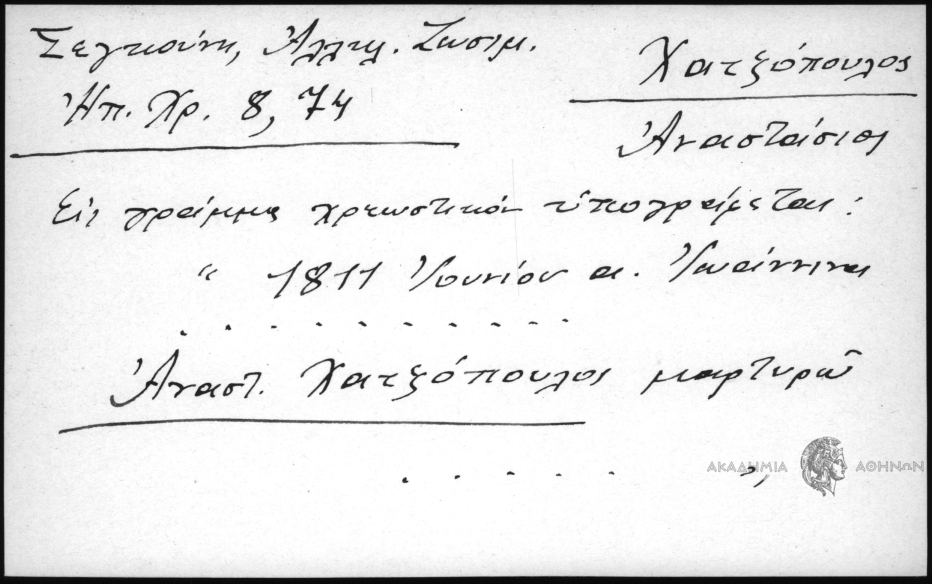 Σεγκούνη, Ἀλληλ. Ζωσιμ.
Ἠπ. Χρ. 8, 74
Χατζόπουλος
Ἀναστάσιος
Εἰς γράμμα χρεωστικόν ὑπογράφεται:
“ 1811 Ἰουνίου α. Ἰωάννινα
. . . . . . . . . . .
Ἀναστ. Χατζόπουλος μαρτυρῶ
. . . . . ”,
ΑΚΑΔΗΜΙΑ ΑΘΗΝΩΝ